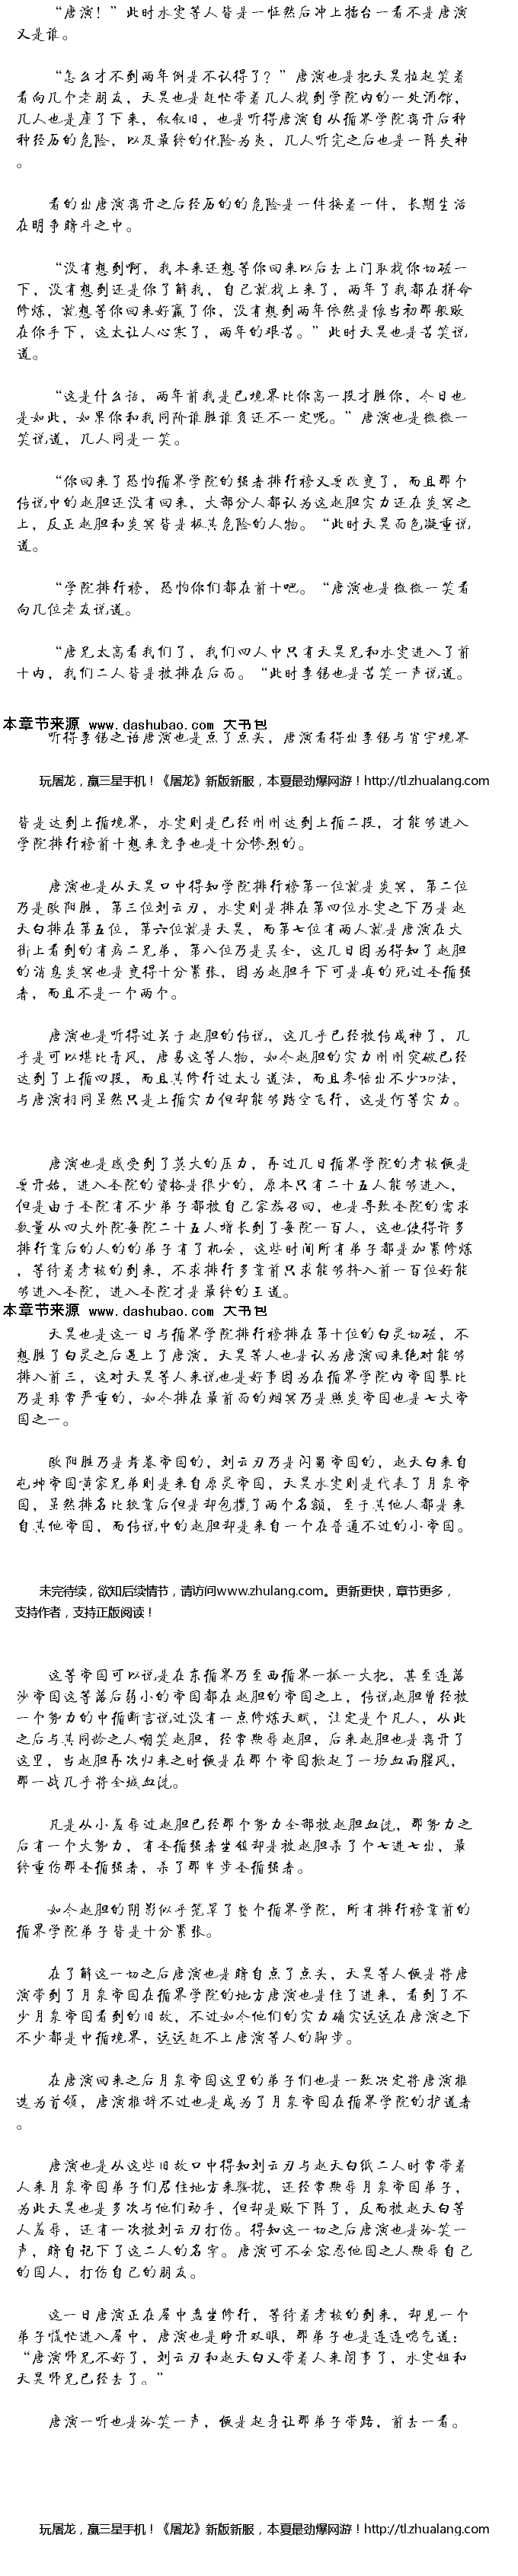 “唐演！”此时水雯等人皆是一怔然后冲上擂台一看不是唐演
又是谁。
“怎么才不到两年倒是不认得了？”唐演也是把天昊拉起笑着
看向几个老朋友，天昊也是赶忙带着几人找到学院内的一处酒馆，
几人也是座了下来，叙叙旧，也是听得唐演自从循界学院离开后种
种经历的危险，以及最终的化险为夷，几人听完之后也是一阵失神
。
看的出唐演离开之后经历的的危险是一件接着一件，长期生活
在明争暗斗之中。
“没有想到啊，我本来还想等你回来以后去上门取找你切磋一
下，没有想到还是你了解我，自己就找上来了，两年了我都在拼命
修炼，就想等你回来好赢了你，没有想到两年依然是像当初那般败
在你手下，这太让人心寒了，两年的艰苦。”此时天昊也是苦笑说
道。
“这是什么话，两年前我是已境界比你高一段才胜你，今日也
是如此，如果你和我同阶谁胜谁负还不一定呢。”唐演也是微微一
笑说道，几人同是一笑。
“你回来了恐怕循界学院的强者排行榜又要改变了，而且那个
传说中的赵胆还没有回来，大部分人都认为这赵胆实力还在炎冥之
上，反正赵胆和炎冥皆是极其危险的人物。“此时天昊面色凝重说
道。
“学院排行榜，恐怕你们都在前十吧。“唐演也是微微一笑看
向几位老友说道。
“唐兄太高看我们了，我们四人中只有天昊兄和水雯进入了前
十内，我们二人皆是被排在后面。“此时李锡也是苦笑一声说道。
本章节来源 www.dashubao.com 大书包
听得李锡之语唐演也是点了点头，唐演看得出李锡与肖宇境界
玩屠龙，赢三星手机！《屠龙》新版新服，本夏最劲爆网游！http://tl.zhualang.com
皆是达到上循境界，水雯则是已经刚刚达到上循二段，才能够进入
学院排行榜前十想来竞争也是十分惨烈的。
唐演也是从天昊口中得知学院排行榜第一位就是炎冥，第二位
乃是欧阳胜，第三位刘云刃，水雯则是排在第四位水雯之下乃是赵
天白排在第五位，第六位就是天昊，而第七位有两人就是唐演在大
街上看到的有病二兄弟，第八位乃是吴全，这几日因为得知了赵胆
的消息炎冥也是变得十分紧张，因为赵胆手下可是真的死过圣循强
者，而且不是一个两个。
唐演也是听得过关于赵胆的传说，这几乎已经被传成神了，几
乎是可以堪比青风，唐易这等人物，如今赵胆的实力刚刚突破已经
达到了上循四段，而且其修行过太古道法，而且参悟出不少功法，
与唐演相同虽然只是上循实力但却能够踏空飞行，这是何等实力。
唐演也是感受到了莫大的压力，再过几日循界学院的考核便是
要开始，进入圣院的资格是很少的，原本只有二十五人能够进入，
但是由于圣院有不少弟子都被自己家族召回，也是导致圣院的需求
数量从四大外院每院二十五人增长到了每院一百人，这也使得许多
排行靠后的人的的弟子有了机会，这些时间所有弟子都是加紧修炼
，等待着考核的到来，不求排行多靠前只求能够挤入前一百位好能
够进入圣院，进入圣院才是最终的王道。
本章节来源 www.dashubao.com 大书包
天昊也是这一日与循界学院排行榜排在第十位的白灵切磋，不
想胜了白灵之后遇上了唐演，天昊等人也是认为唐演回来绝对能够
排入前三，这对天昊等人来说也是好事因为在循界学院内帝国攀比
乃是非常严重的，如今排在最前面的烟冥乃是照炎帝国也是七大帝
国之一。
欧阳胜乃是舞卷帝国的，刘云刃乃是闪蜀帝国的，赵天白来自
屯坤帝国黄家兄弟则是来自原灵帝国，天昊水雯则是代表了月泉帝
国，虽然排名比较靠后但是却包揽了两个名额，至于其他人都是来
自其他帝国，而传说中的赵胆却是来自一个在普通不过的小帝国。
未完待续，欲知后续情节，请访问www.zhulang.com。更新更快，章节更多，
支持作者，支持正版阅读！
这等帝国可以说是在东循界乃至西循界一抓一大把，甚至连落
沙帝国这等落后弱小的帝国都在赵胆的帝国之上，传说赵胆曾经被
一个努力的中循断言说过没有一点修炼天赋，注定是个凡人，从此
之后与其同龄之人嘲笑赵胆，经常欺辱赵胆，后来赵胆也是离开了
这里，当赵胆再次归来之时便是在那个帝国掀起了一场血雨腥风，
那一战几乎将全城血洗。
凡是从小羞辱过赵胆已经那个努力全部被赵胆血洗，那努力之
后有一个大努力，有圣循强者坐镇却是被赵胆杀了个七进七出，最
终重伤那圣循强者，杀了那半步圣循强者。
如今赵胆的阴影似乎笼罩了整个循界学院，所有排行榜靠前的
循界学院弟子皆是十分紧张。
在了解这一切之后唐演也是暗自点了点头，天昊等人便是将唐
演带到了月泉帝国在循界学院的地方唐演也是住了进来，看到了不
少月泉帝国看到的旧故，不过如今他们的实力确实远远在唐演之下
不少都是中循境界，远远赶不上唐演等人的脚步。
在唐演回来之后月泉帝国这里的弟子们也是一致决定将唐演推
选为首领，唐演推辞不过也是成为了月泉帝国在循界学院的护道者
。
唐演也是从这些旧故口中得知刘云刃与赵天白纸二人时常带着
人来月泉帝国弟子们居住地方来骚扰，还经常欺辱月泉帝国弟子，
为此天昊也是多次与他们动手，但却是败下阵了，反而被赵天白等
人羞辱，还有一次被刘云刃打伤。得知这一切之后唐演也是冷笑一
声，暗自记下了这二人的名字。唐演可不会容忍他国之人欺辱自己
的国人，打伤自己的朋友。
这一日唐演正在屋中盘坐修行，等待着考核的到来，却见一个
弟子慌忙进入屋中，唐演也是睁开双眼，那弟子也是连连喘气道：
“唐演师兄不好了，刘云刃和赵天白又带着人来闹事了，水雯姐和
天昊师兄已经去了。”
唐演一听也是冷笑一声，便是起身让那弟子带路，前去一看。
玩屠龙，赢三星手机！《屠龙》新版新服，本夏最劲爆网游！http://tl.zhualang.com